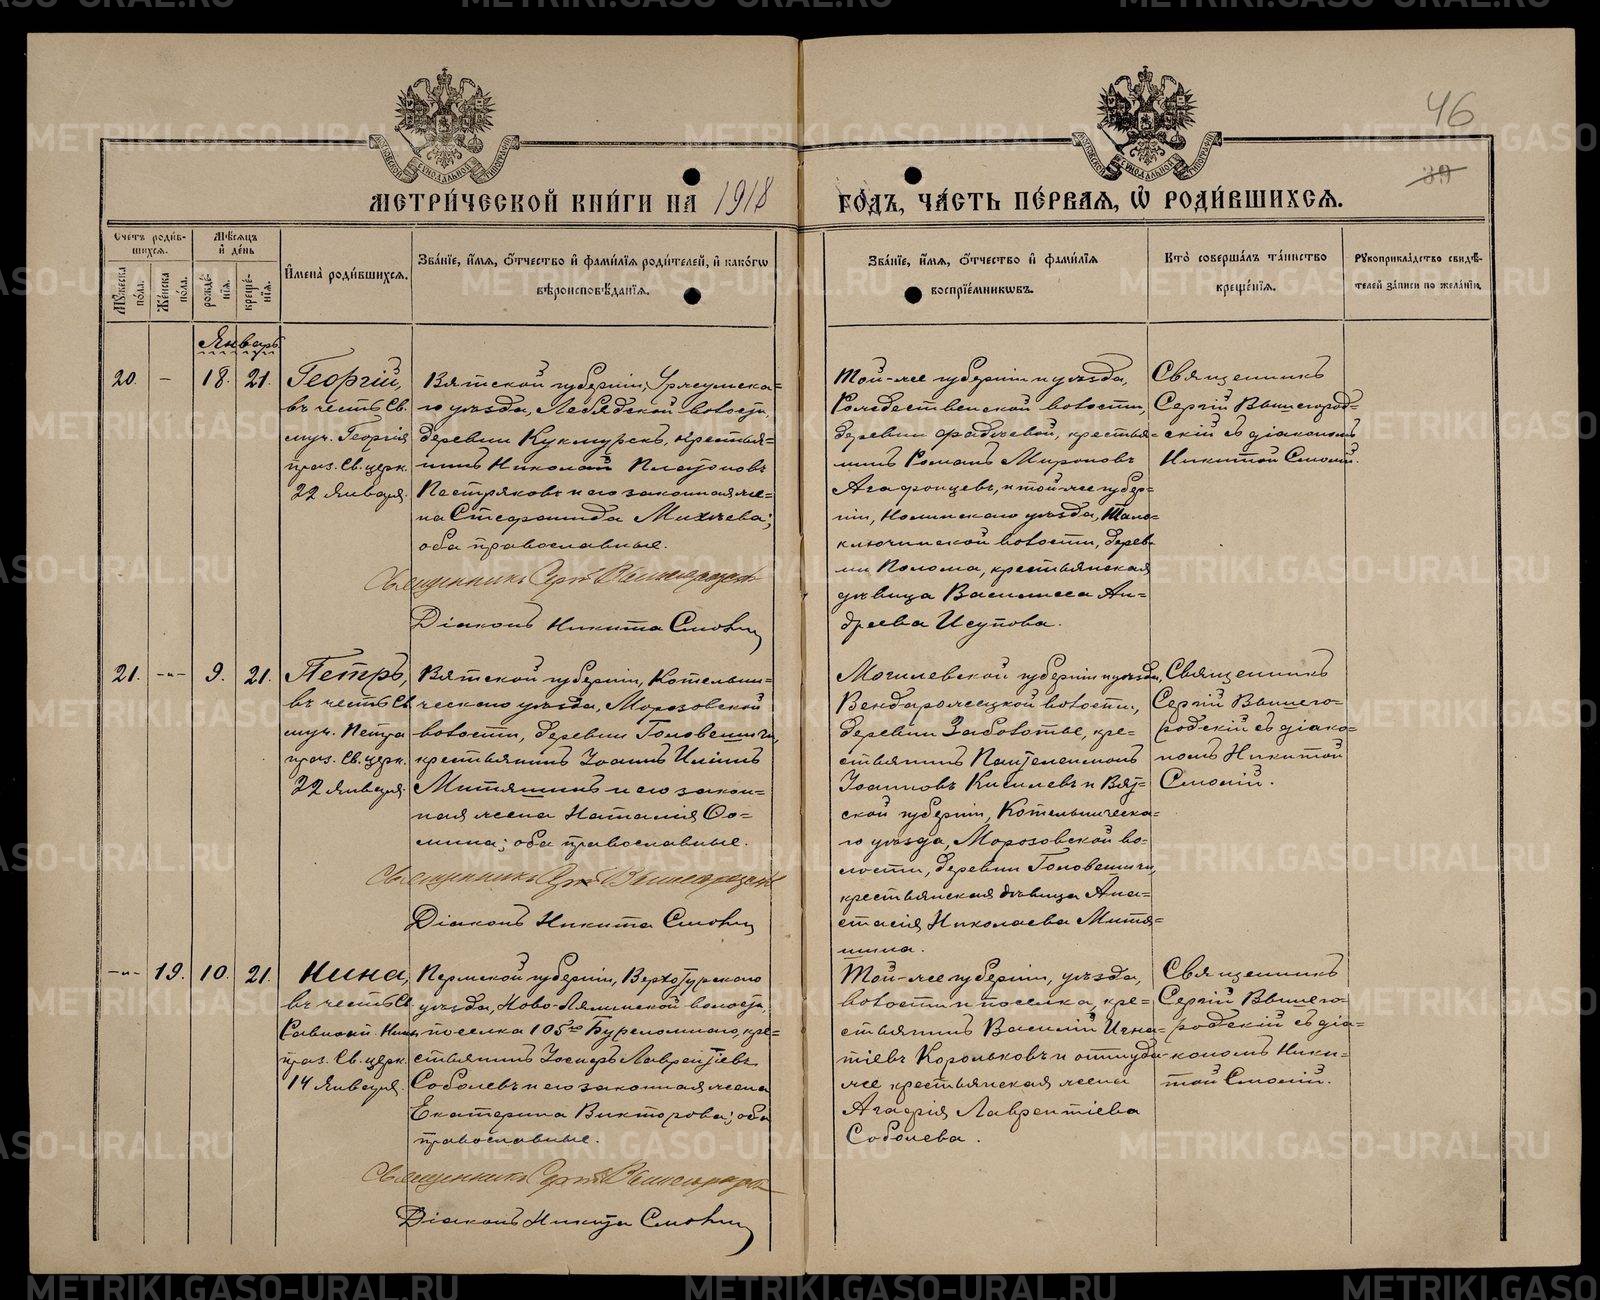 46
39
МЕТРИ́ЧЕСКОЙ КНИ́ГИ НА 1918 ГО́ДЪ, ЧА́СТЬ ПЕ́РВАЯ, Ѡ РОДИ́ВШИХСЯ.
Сче́тъ роди́в-
шихся.
Мѣ́сяцъ
и҆ де́нь
Му́жеска
по́ла.
Же́нска
по́ла.
рожде́-
нія.
креще́-
нія.
И҆мена̀ роди́вшихся.
Зва́нїе, и҆́мя, ѻ҆́тчество и҆ фами́лїя роди́телей, и҆ како́гѡ
вѣроисповѣ́данїя.
Зва́нїе, и҆́мя, ѻ҆́тчество и҆ фами́лїя
воспрїе́мникѡвъ.
Кто̀ соверша́лъ та́инство
креще́нїя.
Рꙋкоприкла́дство свидѣ́-
телей за́писи по жела́нїю.
Январь
20.
—
18.
21.
Георгій,
въ честь Св.
муч. Георгія
праз. Св. церк.
22 Января.
Вятской губерніи, Уржумска-
го уѣзда, Лебяжской волости,
деревни Кукмурскъ, крестья-
нинъ Николай Платоновъ
Пестряковъ и его законная же-
на Стефанида Михеева;
оба православные.
Священникъ Сергій Вышегородскій
Діаконъ Никита Смолій
Той-же губерніи и уѣзда,
Рождественской волости,
деревни Фадѣевой, крестья-
нинъ Романъ Мироновъ
Агафонцевъ, и той-же губер-
ніи, Нолинскаго уѣзда, Тало-
ключинской волости, дерев-
ни Полома, крестьянская
дѣвица Василиса Ан-
дреева Исупова.
Священникъ
Сергій Вышегород-
скій съ діакономъ
Никитой Смолій.
21.
-"-
9.
21.
Петръ,
въ честь Св.
муч. Петра
праз. Св. церк.
22 Января.
Вятской губерніи, Котельни-
ческаго уѣзда, Морозовской
волости, деревни Головешичи,
крестьянинъ Іоаннъ Илiинъ
Митяшинъ и его закон-
ная жена Наталія Ѳо-
мина; оба православные.
Священникъ Сергій Вышегородскій
Діаконъ Никита Смолій
Могилевской губерніи и уѣзда,
Вендорожецкой волости,
деревни Заболотье, кре-
стьянинъ Пантелеимонъ
Іоанновъ Киселевъ и Вят-
ской губерніи, Котельническа-
го уѣзда, Морозовской во-
лости, деревни Головешичи,
крестьянская дѣвица Ана-
стасія Николаева Митя-
шина.
Священникъ
Сергій Вышего-
родскій съ діако-
номъ Никитой
Смолій.
-"-
19.
10.
21.
Нина,
въ честь Св.
Равноап. Нины,
праз. Св. церк.
14 Января.
Пермской губерніи, Верхотурскаго
уѣзда, Ново-Лялинской волости,
поселка 105го Буреломнаго, кре-
стьянинъ Іосифъ Лаврентіевъ
Соболевъ и его законная жена
Екатерина Викторова; оба
православные.
Священникъ Сергій Вышегородскій
Діаконъ Никита Смолій
Той-же губерніи, уѣзда,
волости и поселка, кре-
стьянинъ Василій Игна-
тіевъ Корольковъ и оттуда-
же крестьянская жена
Агафія Лаврентіева
Соболева.
Священникъ
Сергій Вышего-
родскій съ діа-
кономъ Ники-
той Смолій.